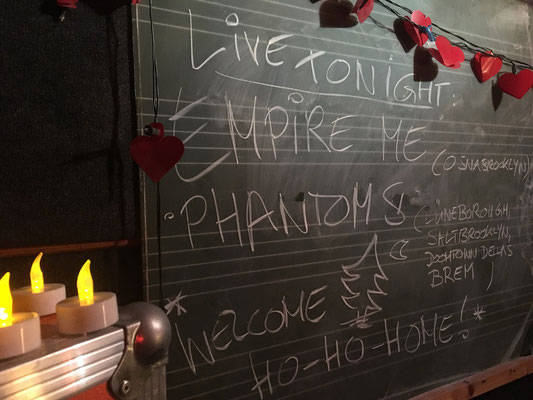 LIVE TONIGHT:
EMPIRE ME
(OSNABROOKLYN)
·PHANTOMS
(LÜNEBOROUGH,
SALTBROOKLYN,
DOOMTOWN DELLAS
BREM)
*WELCOME
HO-HO-HOME!*